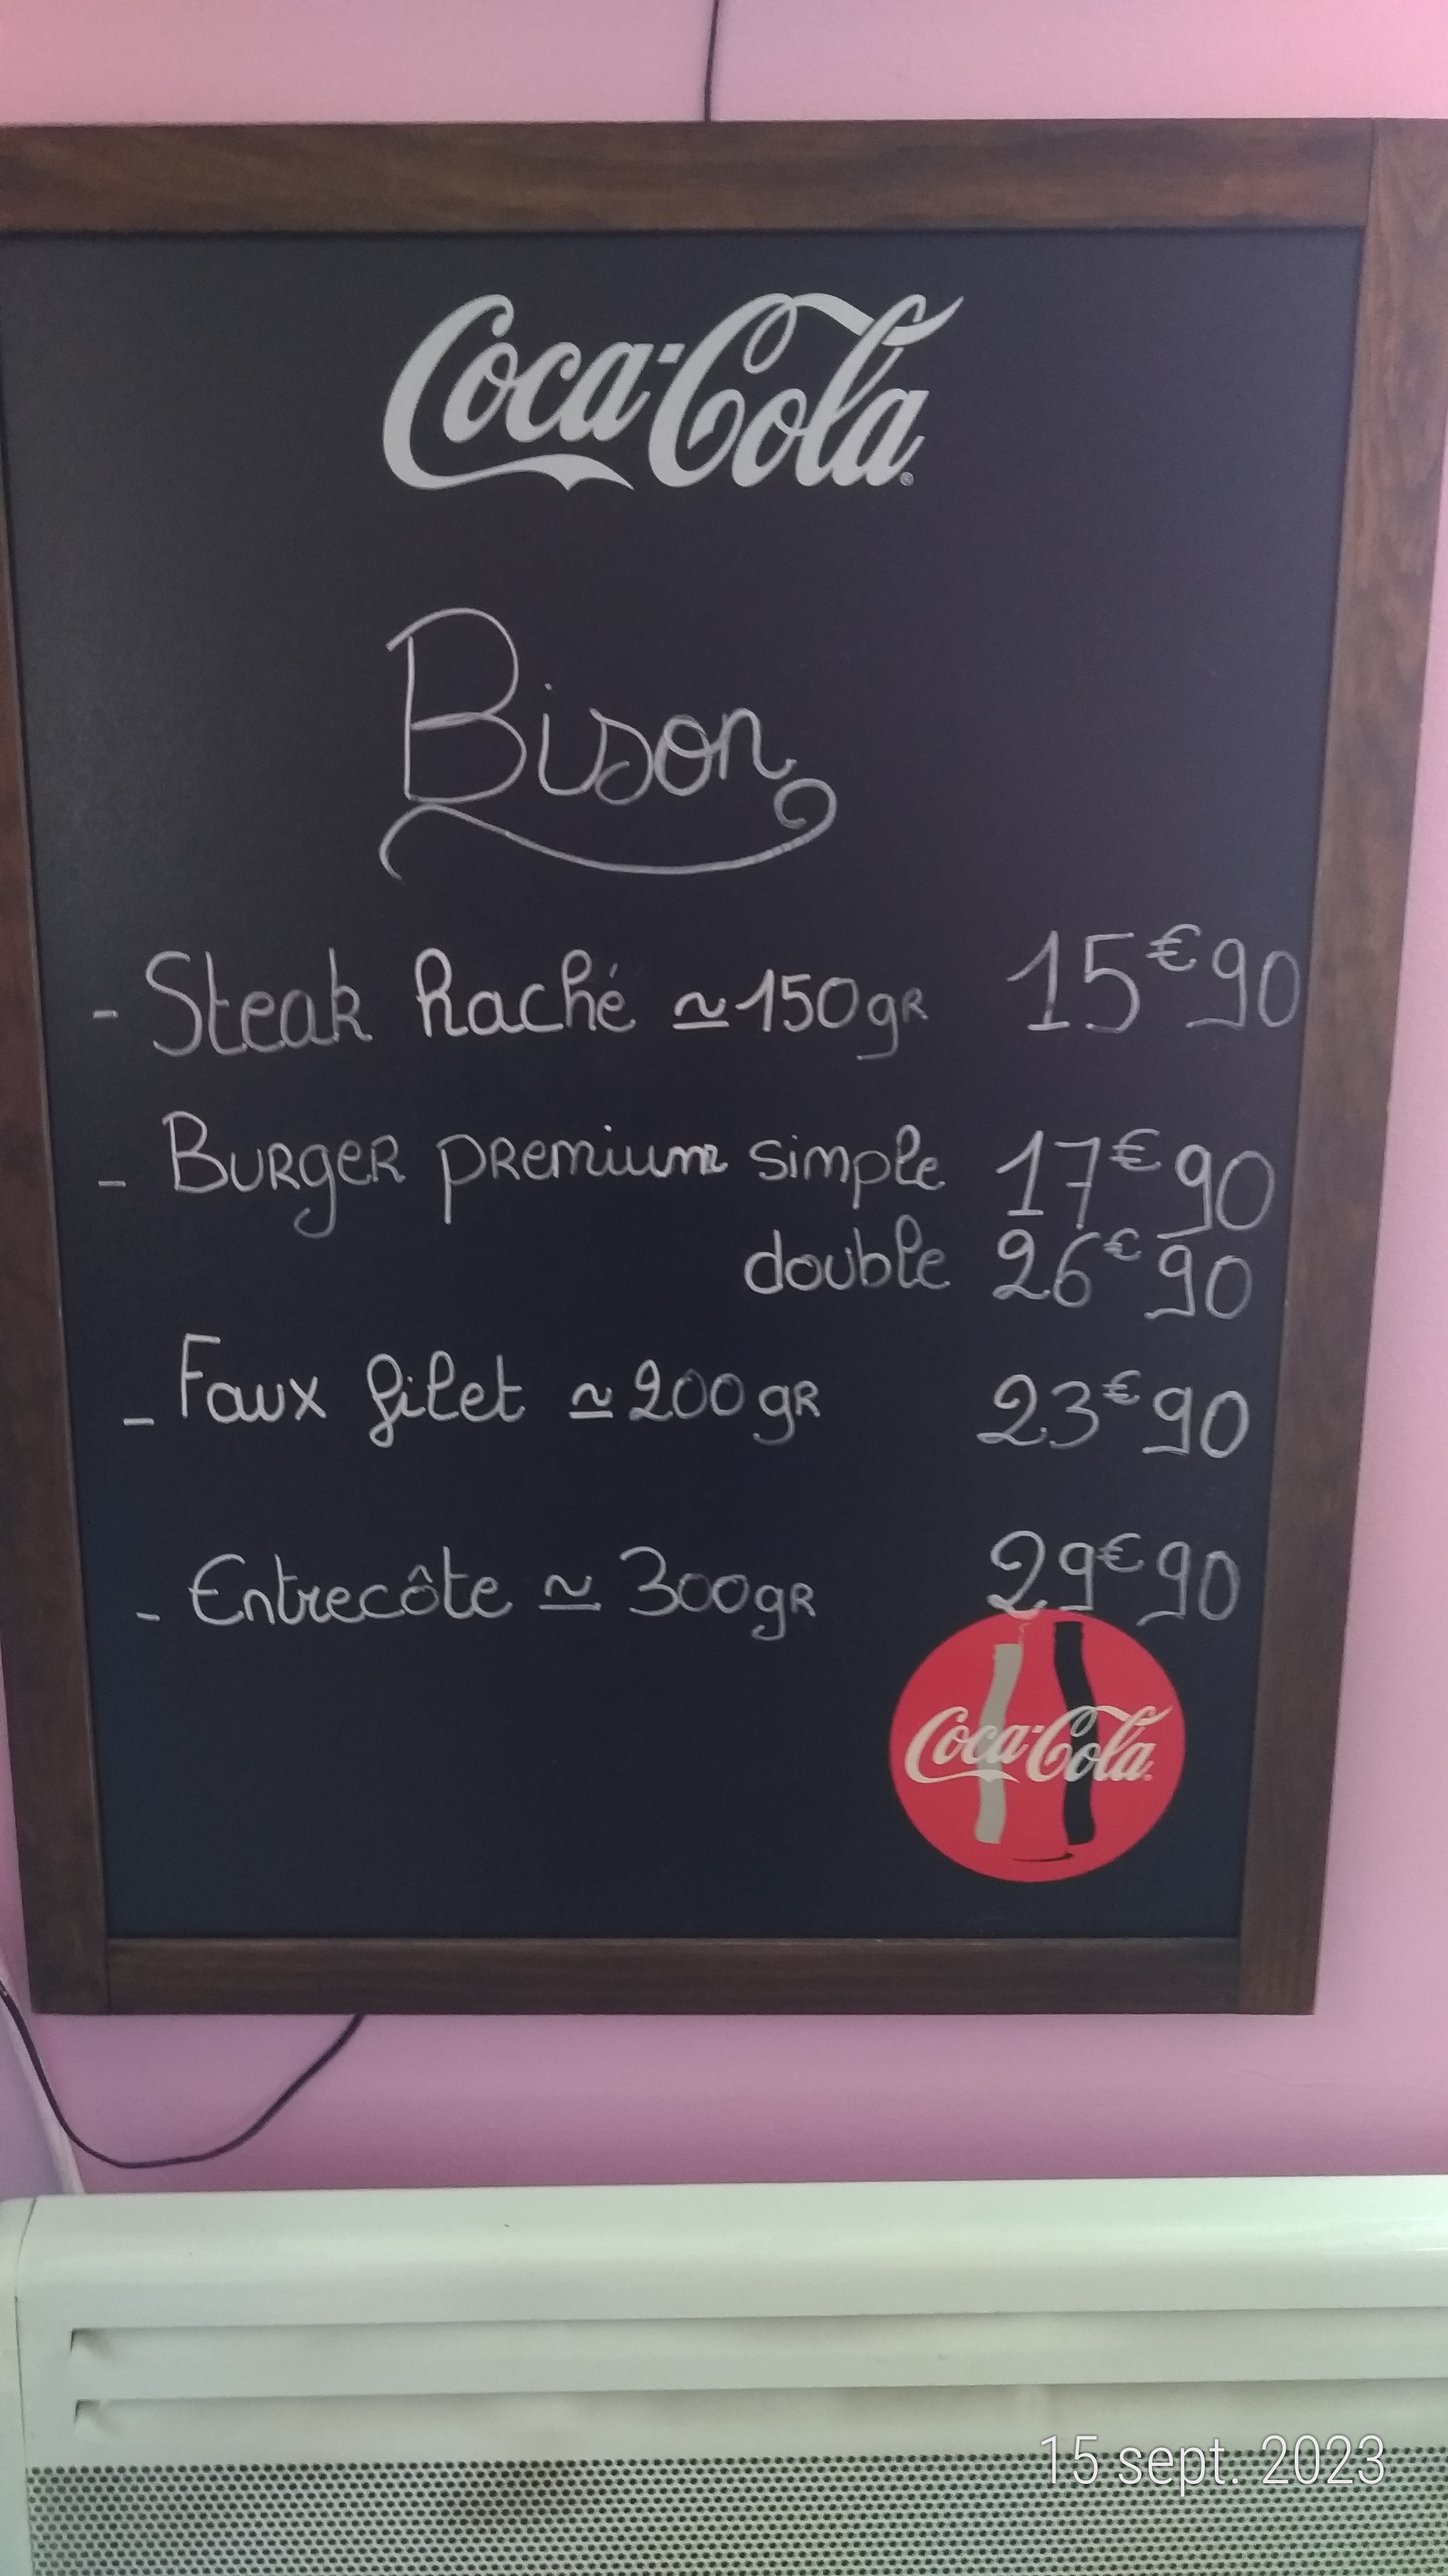 Coca-Cola
Bison
- Steak haché ≃150gr 15€90
- Burger premium simple 17€90
double 26€90
- Faux filet ≃200gr 23€90
- Entrecôte ≃ 300gr 29€90
Coca-Cola
15 sept. 2023